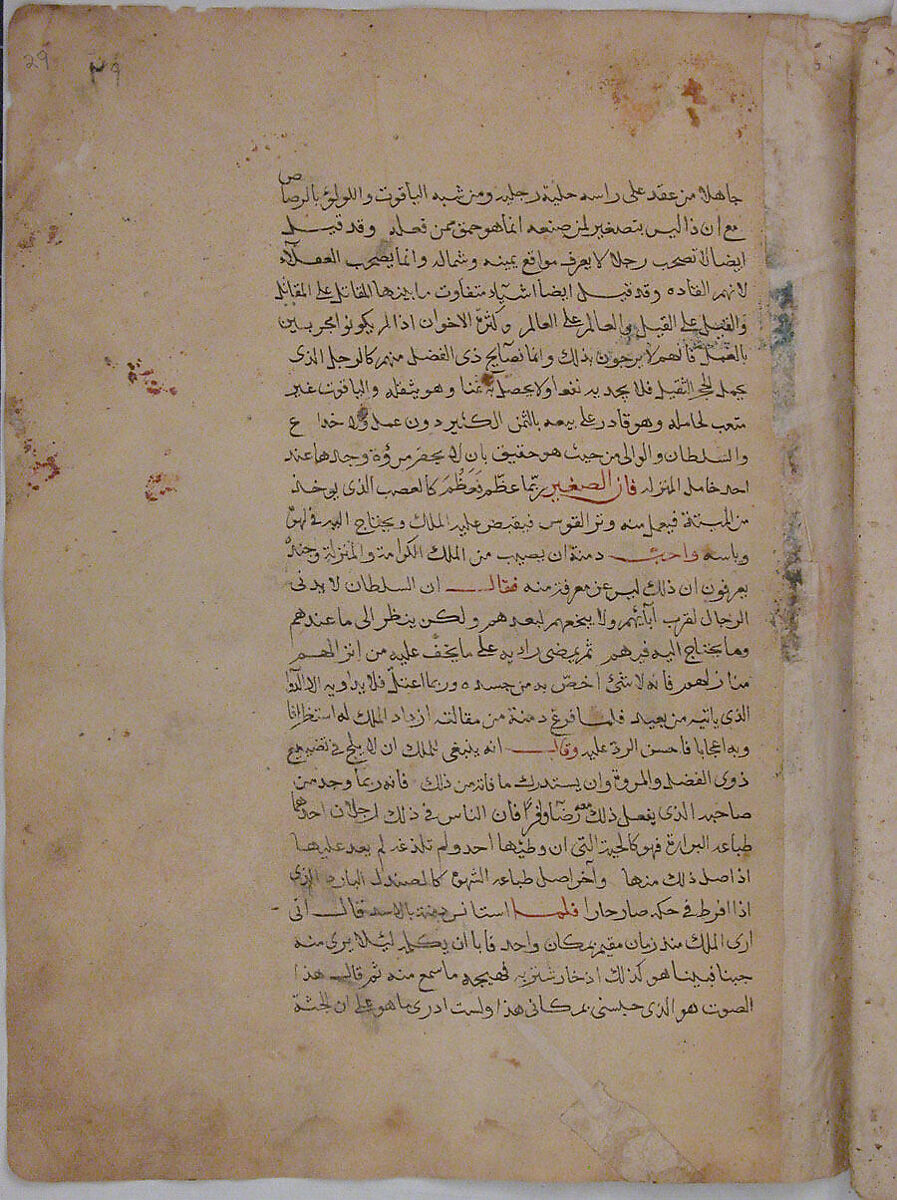 29 ٢٩
جاهلا من عقد على راسه حلية رجليه ومن شبه الياقوت واللولؤ بالرصاص
مع ان ذا ليس بتصغير لمن صنعه انما هو حمق ممن فعله وقد قيل
ايضا لا تصحب رجلا لا يعرف مواقع يمينه وشماله وانما يصحب العقلاء
لانهم القاده وقد قيل ايضا اشياء متفاوت ما بينها المقاتل على المقاتل
والفيل على الفيل والعالم على العالم وكثرة الاخوان اذا لم يكونوا مجربين
بالعمل فانهم لا يرجون بذلك وانما نصايح ذى الفضل منهم كالرجل الذى
يحمل الحجر الثقيل فلا يجد به نفعا ولا يحصل به غنا وهو يثقله والياقوت غير
متعب لحامله وهو قادر على بيعه بالثمن الكثير دون عمل ولا خداع
والسلطان والوالى من حيث هو حقيق بان لا يحقر مروة وجدها عند
احد خامل المنزله فان الصغير ربما عظم فعظم كالعصب الذى يوخذ
من الميتة فيعمل منه وتر القوس فيقبض عليه الملك ويحتاج اليه فى لهوه
وباسه واحب دمنة ان يصيب من الملك الكرامة والمنزلة وجنده
يعرفون ان ذلك ليس عن معرفة منه فقال ان السلطان لا يدنى
الرجال لقرب آبائهم ولا يبخعهم لبعدهم ولكن ينظر الى ما عندهم
وما يحتاج اليه فيهم ثم يمضى رايه على ما يخف عليه من انزالهم
منازلهم فانه لا شئ اخص به من جسده وربما اعتل فلا يداويه الا الدوا
الذى ياتيه من بعيد فلما فرغ دمنة من مقالته ازداد الملك له استظرافا
وبه اعجابا فاحسن الرد عليه وقال انه ينبغى للملك ان لا يلج فى تضييع
ذوى الفضل والمروة وان يستدرك ما فاته من ذلك فانه ربما وجد من
صاحبه الذى يفعل ذلك معه رضا وافرا فان الناس فى ذلك رجلان احدهما
طباعه الشرارة فهو كالحية التى ان وطئها احد ولم تلذغه لم يعد عليها
اذ اصل ذلك منها وآخر اصل طباعه السهولة كالصندل البارد الذى
اذا افرط فى حكه صار حارا فلما استانس دمنة بالاسد قال انى
ارى الملك منذ زمان مقيم بمكان واحد فابا ان يكلمه ليلا يرى منه
جبنا فبينا هو كذلك اذ خار شتربه فهيجه ما سمع منه ثم قال هذا
الصوت هو الذى حبسنى بمكانى هذا ولست ادرى ما هو على ان الجثة